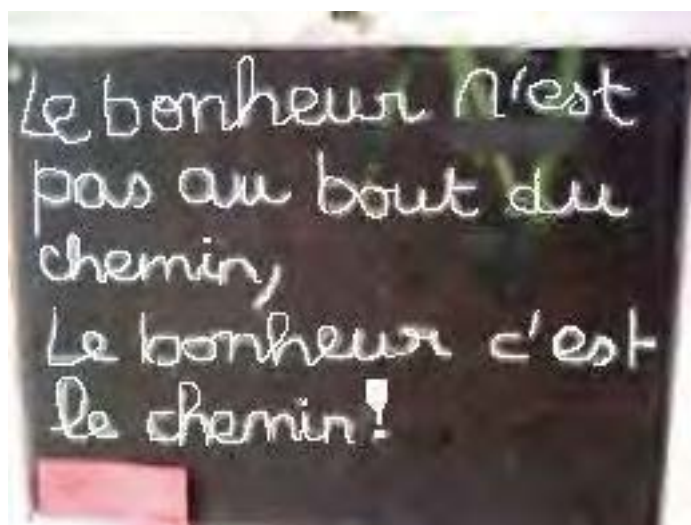 Le bonheur n'est
pas au bout du
chemin,
Le bonheur c'est
le chemin!